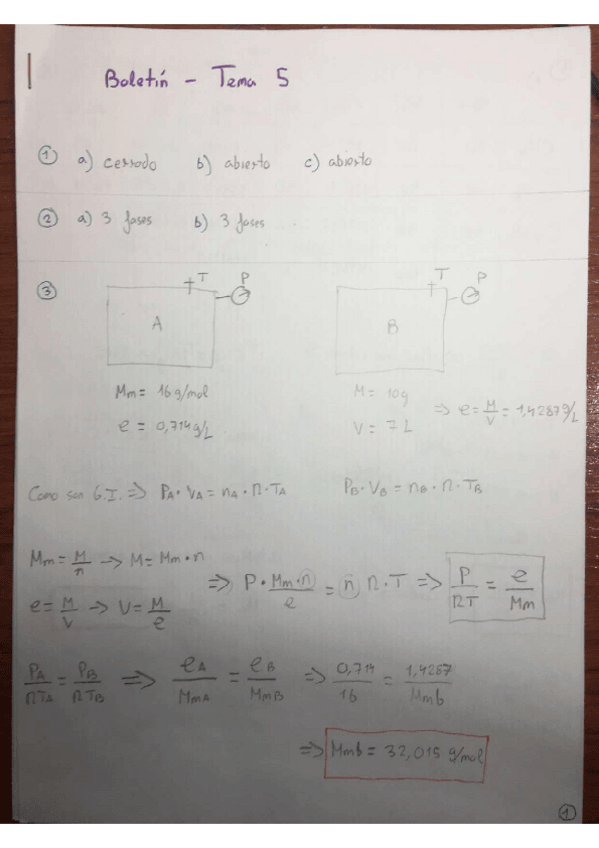 Boletín - Tema 5
① a) cerrado b) abierto c) abierto
② a) 3 fases b) 3 fases
③ T P T P
A B
Mm = 16 g/mol M = 10g
ρ = 0,714 g/L V = 7 L => ρ = M/V = 1,4287 g/L
Como son G.I. => PA · VA = nA · R · TA PB · VB = nB · R · TB
Mm = M/n -> M = Mm · n
ρ = M/V -> V = M/ρ => P · Mm · n/ρ = n R · T => P/RT = ρ/Mm
PA/RTA = PB/RTB => ρA/MmA = ρB/MmB => 0,714/16 = 1,4287/Mmb
=> Mmb = 32,015 g/mol
①